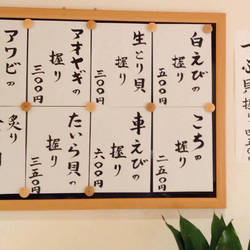 白えびの
握り
五〇〇円
生とり貝
握り
三〇〇円
アオヤギの
握り
三〇〇円
アワビの
こちの
握り
二五〇円
車えびの
握り
六〇〇円
たいら貝の
握り
三五〇円
炙り